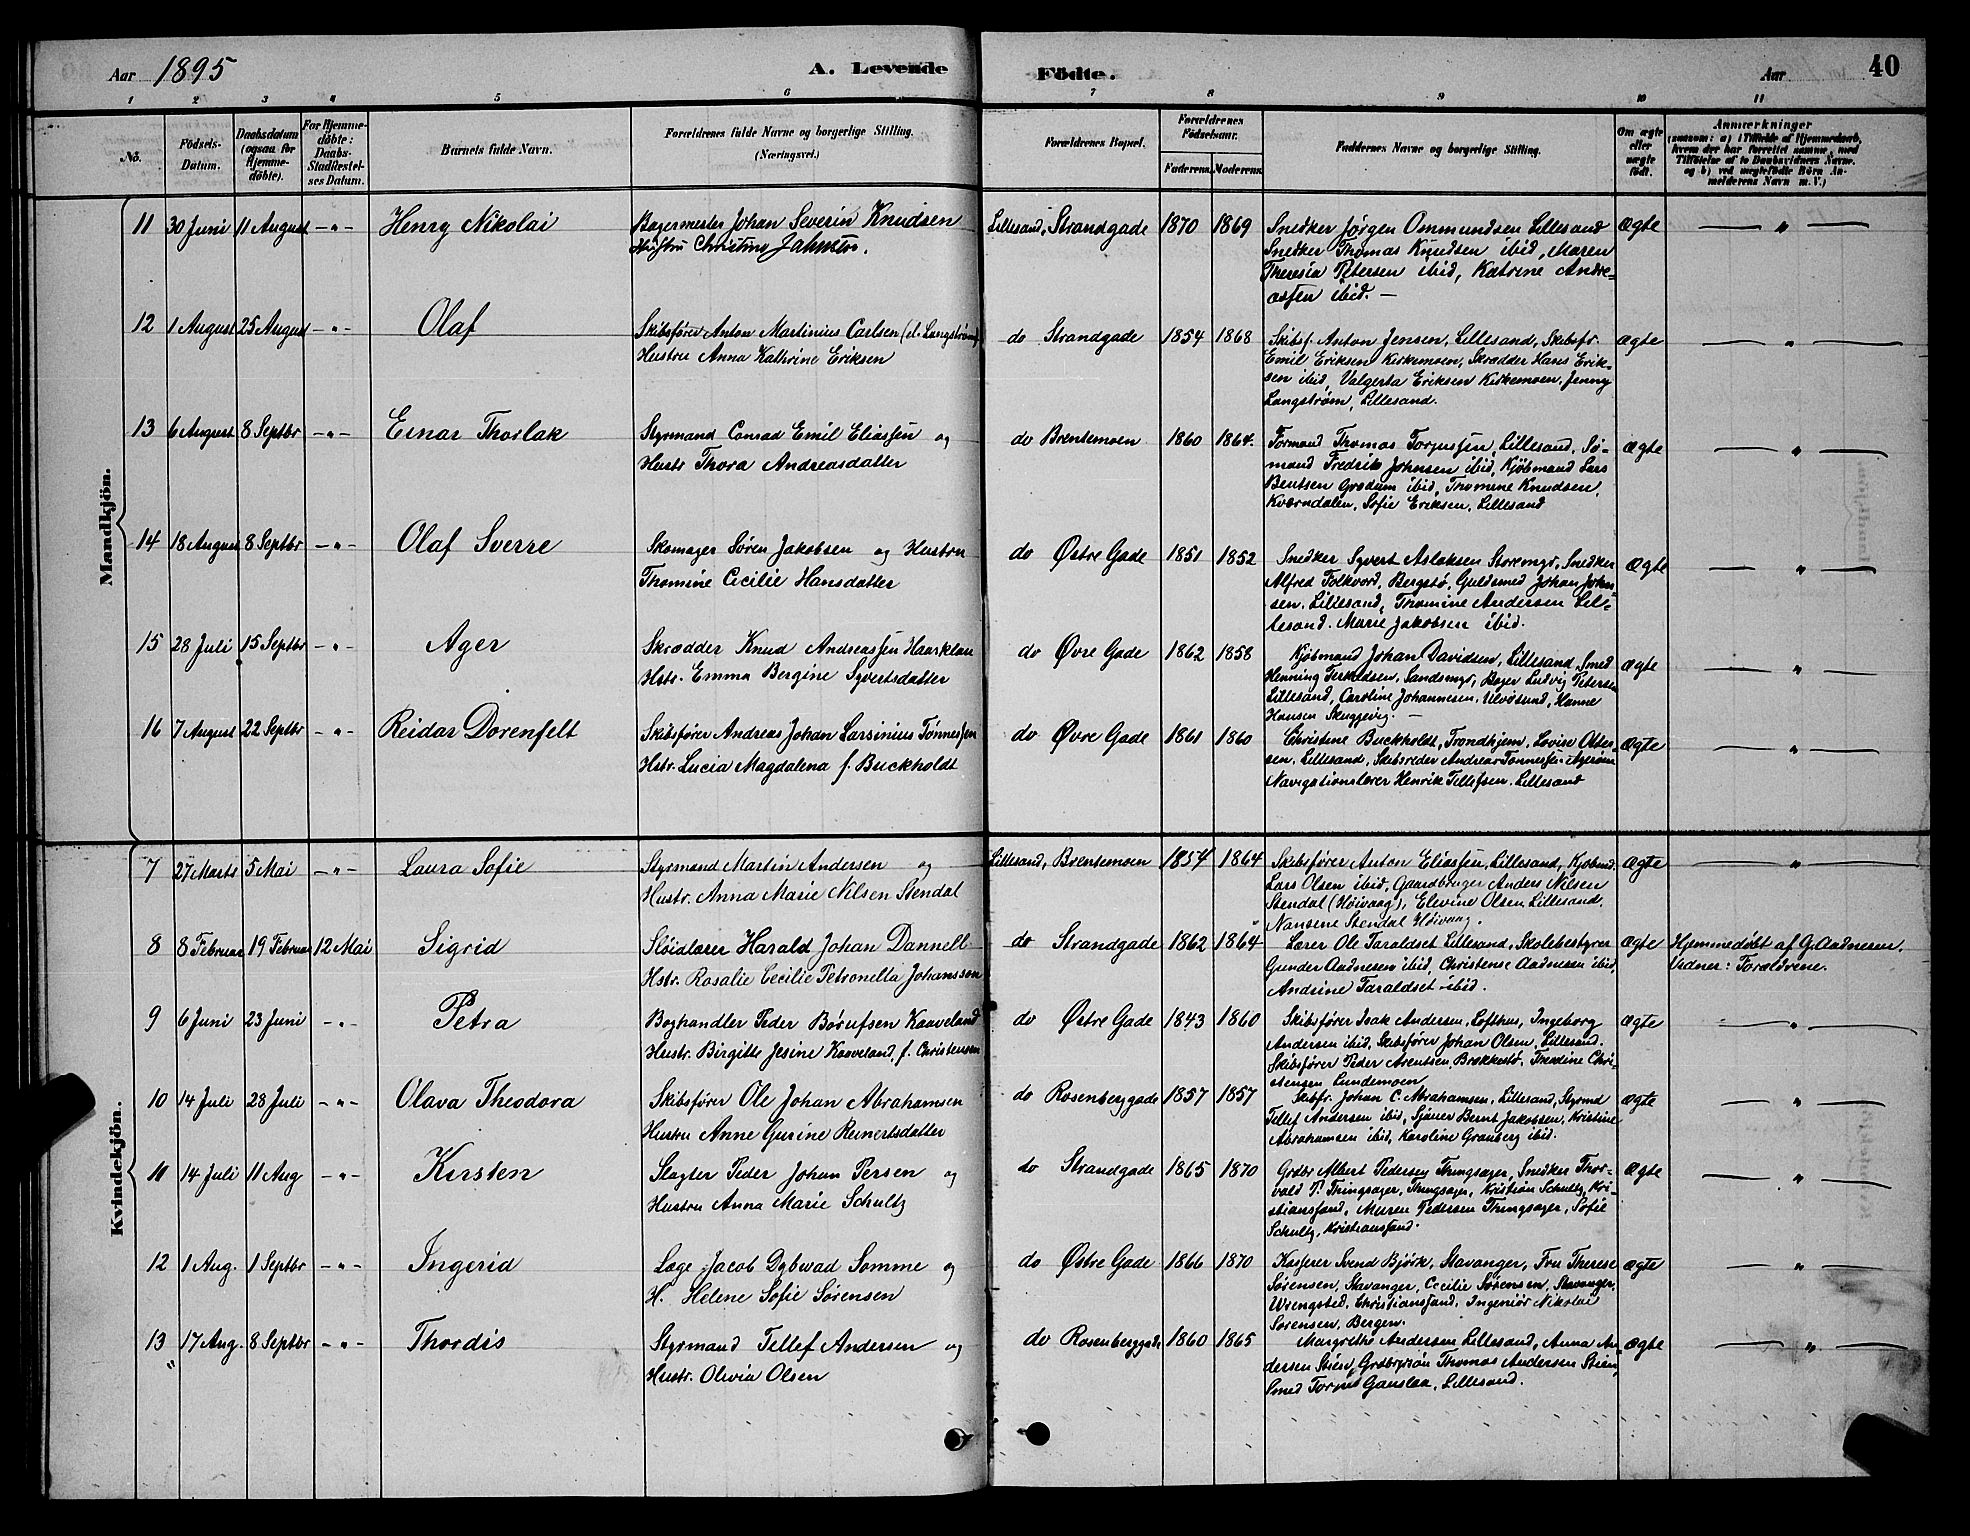 Aar 1895
A. Levende
Födte.
Aar
40
1 2 3 4 5 6 7 8 9 10 11
No.
Födsels-
Datum.
Daabsdatum
(ogsaa for
Hjemme-
döbte).
For Hjemme-
döbte:
Daabs-
Stadfestel-
ses Datum.
Barnets fulde Navn.
Forældrenes fulde Navne og borgerlige Stilling.
(Næringsvei.)
Forældrenes Bopæl.
Forældrenes
Födselsaar.
Faderens. Moderens.
Faddernes Navne og borgerlige Stilling.
Om ægte
eller
uægte
födt.
Anmærkninger
(saasom: a) i Tilfælde af Hjemmedaab,
hvem der har forrettet samme, med
Tilföielse af to Daabsvidners Navne.
og b) ved uegtefödte Börn An-
melderens Navn m. V.)
Mandkjön.
11 30 Juni 11 August -"- Henry Nikolai
Bagermester Johan Severin Knudsen
Hustru Christine
Lillesand, Strandgade 1870 1869
Snedker Jørgen Ommundsen Lillesand
Snedker Thomas Knudsen ibid, Maren
Theresia Petersen ibid, Katrine Andre-
assen ibid. —
Ægte — " —
12 1 August 25 August -"- Olaf
Skibsfører Anton Martinius Carlsen (d. Langstrøm)
Hustru Anna Kathrine Eriksen
do Strandgade 1854 1868
Skibsf. Anton Jensen, Lillesand, Skibsfr.
Emil Eriksen Kirkemoen, Skrædder Hans Erik-
sen ibid, Valgerta Eriksen Kirkemoen, Jenny
Langstrøm, Lillesand.
Ægte — " —
13 6 August 8 Septbr -"- Einar Thorlak
Styrmand Conrad Emil Eliassen og
Hustr Thora Andreasdatter
do Brentemoen 1860 1864.
Formand Thomas Torjussen, Lillesand, Sø-
mand Fredrik Johnsen ibid, Kjøbmand Lars
Bentsen Grødum ibid, Thomine Knudsen,
Kværndalen, Sofie Eriksen, Lillesand
Ægte — " —
14 18 August 8 Septbr -"- Olaf Sverre
Skomager Søren Jakobsen og Hustru
Thomine Cecilie Hansdatter
do Østre Gade 1851 1852
Snedker Syvert Aslaksen Storemyr, Snedker
Alfred Folkvord, Bergstø, Guldsmed Johan Johan-
sen, Lillesand, Thomine Andersen Lil-
lesand. Marie Jakobsen ibid.
Ægte — " —
15 28 Juli 15 Septbr -"- Ager
Skrædder Knud Andreassen Haarklau
Hstr. Emma Bergine Syvertsdatter
do Øvre Gade 1862 1858
Kjøbmand Johan Davidsen, Lillesand, Smed
Henning Terkildsen, Sandsmyr, Bager Ludvig Petersen
Lillesand, Caroline Johannesen, Ulvøsund, Hanne
Hansen Skuggevig. —
Ægte — " —
16 7 August 22 Septbr -"- Reidar Dorenfelt
Skibsfører Andreas Johan Larsinius Tønnessen
Hstr. Lucia Magdalena f. Buckholdt
do Øvre Gade 1861 1860
Christine Buckholdt, Trondhjem, Lovise Otter-
sen, Lillesand, Skibsreder Andreas Tønnessen Ageröen
Navigationslærer Henrik Tellefsen, Lillesand
Ægte — " —
Kvindekjön.
7 27 Marts 5 Mai -"- Laura Sofie
Styrmand Martin Andersen og
Hustr. Anna Marie Nilsen Stendal
Lillesand, Brentemoen 1854 1864
Skibsfører Anton Eliassen, Lillesand, Kjøbmd.
Lars Olsen ibid, Gaardbruger Anders Nilsen
Stendal (Høivaag), Elevine Olsen Lillesand.
Nansine Stendal Høivaag.
Ægte — " —
8 8 Februar 19 Februar 12 Mai Sigrid
Sløidlærer Harald Johan Dannell
Hstr. Rosalie Cecilie Petronella Johansson
do Strandgade 1862 1864
Lærer Ole Taraldset Lillesand, Skolebestyrer
Gunder Aadnesen ibid, Christense Aadnesen ibid,
Andrine Taraldset ibid.
Ægte
Hjemmedøbt af G. Aadnesen.
Vidner: Forældrene.
9 6 Juni 23 Juni -"- Petra
Boghandler Peder Børufsen Kaaveland
Hustr. Birgitte Jesine Kaaveland, f. Christensen
do Østre Gade 1843 1860
Skibsfører Isak Andersen, Lofthus, Ingeborg
Andersen ibid, Skibsfører Johan Olsen, Lillesand.
Skibsfører Peder Arentsen, Brækkestø, Fredine Chri-
stensen Lundemoen
Ægte — " —
10 14 Juli 28 Juli -"- Olava Theodora
Skibsfører Ole Johan Abrahamsen
Hustru Anne Gurine Reinertsdatter
do Rosenberggade 1857 1857
Skibfr. Johan C. Abrahamsen, Lillesand, Styrmd
Tellef Andersen ibid, Sjauer Bernt Jakobsen, Kristine
Abrahamsen ibid, Karoline Granberg ibid.
Ægte — " —
11 14 Juli 11 Aug -"- Kirsten
Slagter Peder Johan Persen og
Hustru Anna Marie Schultz
do Strandgade 1865 1870
Grdbr Albert Pedersen Thingsager, Snedker Thor-
vald P. Thingsager, Thingsager, Kristian Schultz, Kri-
stiansand, Maren Pedersen Thingsager, Sofie
Schultz, Kristianssand.
Ægte — " —
12 1 Aug. 1 Septbr -"- Ingerid
Læge Jacob Dybwad Sømme og
H. Helene Sofie Sørensen
do Østre Gade 1866 1870
Kasserer Svend Bjørk, Stavanger, Fru Therese
Sørensen, Stavanger, Cecilie Sørensen, Stavanger,
Wrengsted, Christianssand, Ingeniør Nikolai
Sørensen, Bergen.
Ægte — " —
13 " 17 Aug. 8 Septbr -"- Thordis
Styrmand Tellef Andersen og
Hustr. Olivia Olsen
do Rosenberggade 1860 1865
Margrethe Andersen Lillesand, Anna An-
dersen Stien, Grdbr. Thomas Andersen Stien
Smed Torjus Gauslaa, Lillesand.
Ægte — " —